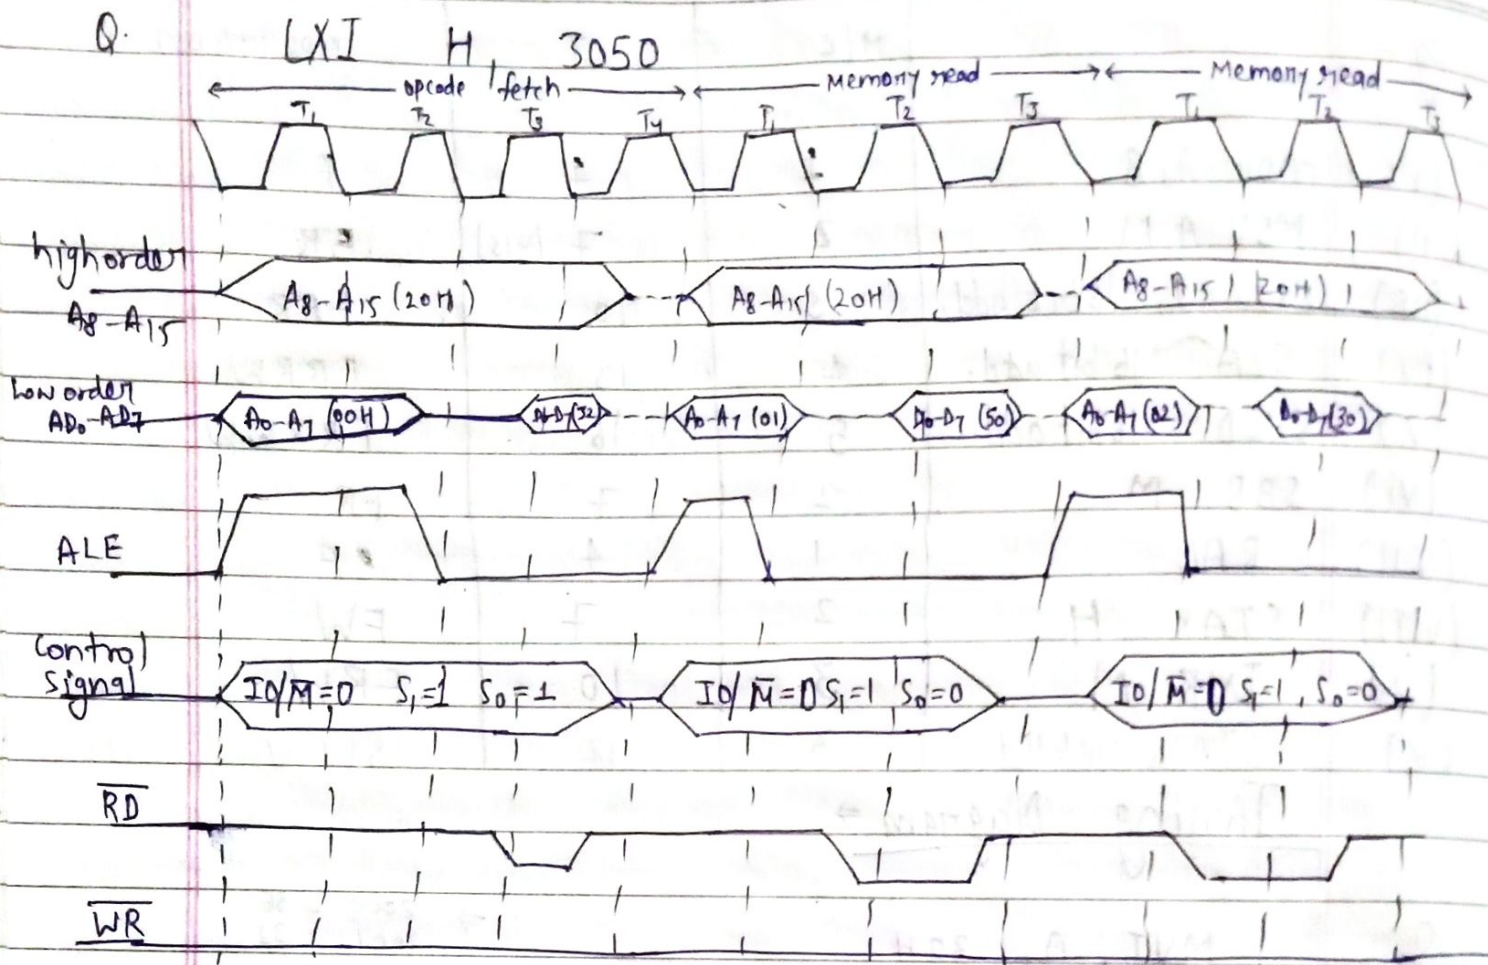 Q. LXI H, 3050
opcode fetch Memory read Memory read
T₁ T₂ T₃ T₄ T₁ T₂ T₃ T₁ T₂ T₃
high order
A₈-A₁₅
A₈-A₁₅ (20H) A₈-A₁₅ (20H) A₈-A₁₅ (20H)
Low order
AD₀-AD₇
A₀-A₇ (00H) D₀-D₇(32) A₀-A₇ (01) D₀-D₇ (50) A₀-A₇ (02) D₀-D₇(30)
ALE
Control
Signal
IO/M̅=0 S₁=1 S₀=1 IO/M̅=0 S₁=1 S₀=0 IO/M̅=0 S₁=1, S₀=0
R̅D̅
W̅R̅